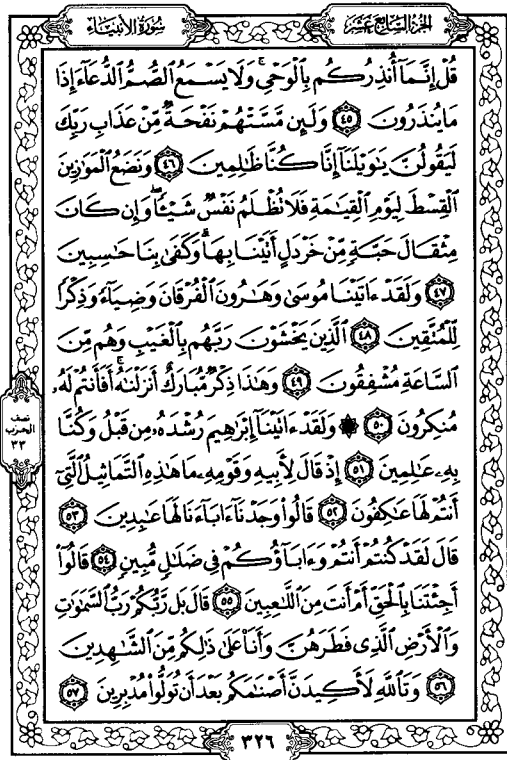 الجزء السابع عشر
سورة الأنبياء
قُلْ إِنَّمَآ أُنذِرُكُم بِٱلْوَحْىِ ۚ وَلَا يَسْمَعُ ٱلصُّمُّ ٱلدُّعَآءَ إِذَا
مَا يُنذَرُونَ ٤٥ وَلَئِن مَّسَّتْهُمْ نَفْحَةٌ مِّنْ عَذَابِ رَبِّكَ
لَيَقُولُنَّ يَـٰوَيْلَنَآ إِنَّا كُنَّا ظَـٰلِمِينَ ٤٦ وَنَضَعُ ٱلْمَوَٰزِينَ
ٱلْقِسْطَ لِيَوْمِ ٱلْقِيَـٰمَةِ فَلَا تُظْلَمُ نَفْسٌ شَيْـًٔا ۖ وَإِن كَانَ
مِثْقَالَ حَبَّةٍ مِّنْ خَرْدَلٍ أَتَيْنَا بِهَا ۗ وَكَفَىٰ بِنَا حَـٰسِبِينَ
٤٧ وَلَقَدْ ءَاتَيْنَا مُوسَىٰ وَهَـٰرُونَ ٱلْفُرْقَانَ وَضِيَآءً وَذِكْرًا
لِّلْمُتَّقِينَ ٤٨ ٱلَّذِينَ يَخْشَوْنَ رَبَّهُم بِٱلْغَيْبِ وَهُم مِّنَ
ٱلسَّاعَةِ مُشْفِقُونَ ٤٩ وَهَـٰذَا ذِكْرٌ مُّبَارَكٌ أَنزَلْنَـٰهُ ۚ أَفَأَنتُمْ لَهُۥ
مُنكِرُونَ ٥٠ ۞ وَلَقَدْ ءَاتَيْنَآ إِبْرَٰهِيمَ رُشْدَهُۥ مِن قَبْلُ وَكُنَّا
بِهِۦ عَـٰلِمِينَ ٥١ إِذْ قَالَ لِأَبِيهِ وَقَوْمِهِۦ مَا هَـٰذِهِ ٱلتَّمَاثِيلُ ٱلَّتِىٓ
أَنتُمْ لَهَا عَـٰكِفُونَ ٥٢ قَالُوا۟ وَجَدْنَآ ءَابَآءَنَا لَهَا عَـٰبِدِينَ ٥٣
قَالَ لَقَدْ كُنتُمْ أَنتُمْ وَءَابَآؤُكُمْ فِى ضَلَـٰلٍ مُّبِينٍ ٥٤ قَالُوٓا۟
أَجِئْتَنَا بِٱلْحَقِّ أَمْ أَنتَ مِنَ ٱللَّـٰعِبِينَ ٥٥ قَالَ بَل رَّبُّكُمْ رَبُّ ٱلسَّمَـٰوَٰتِ
وَٱلْأَرْضِ ٱلَّذِى فَطَرَهُنَّ وَأَنَا۠ عَلَىٰ ذَٰلِكُم مِّنَ ٱلشَّـٰهِدِينَ
٥٦ وَتَٱللَّهِ لَأَكِيدَنَّ أَصْنَـٰمَكُم بَعْدَ أَن تُوَلُّوا۟ مُدْبِرِينَ ٥٧
نصف
الحزب
٣٣
٣٢٦